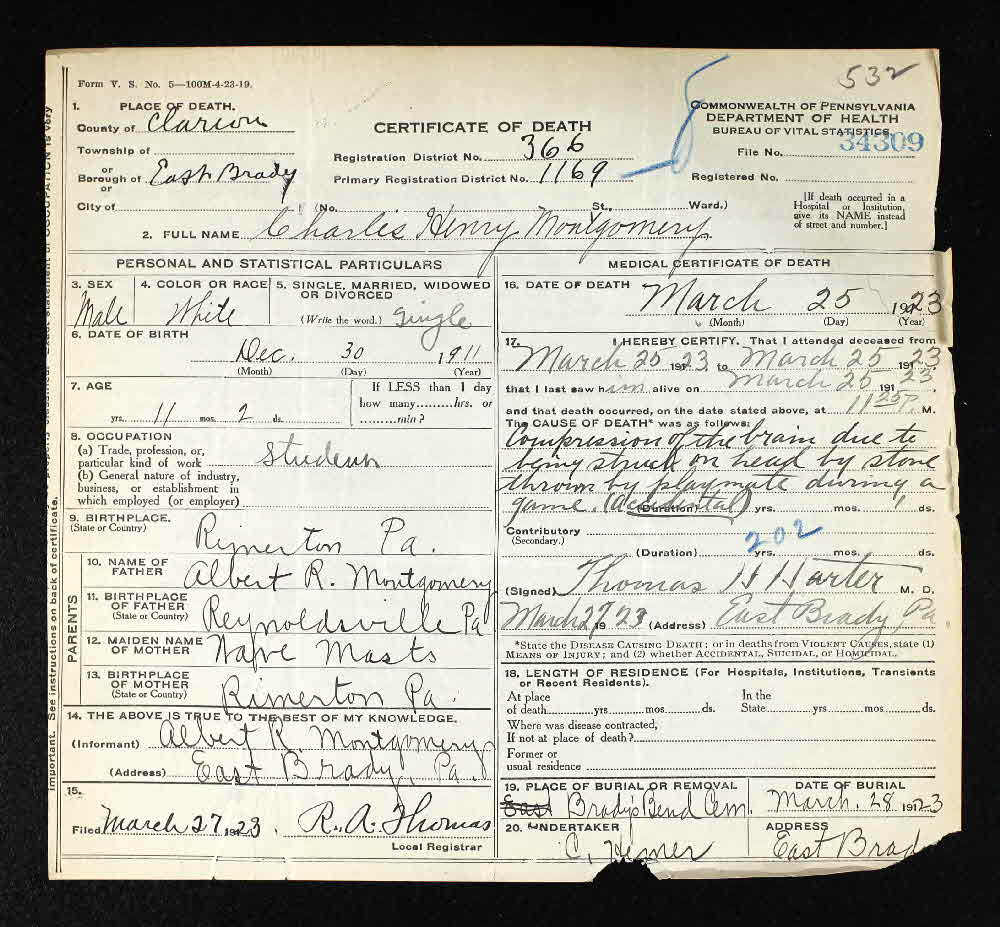 532
Form V. S. No. 5—100M-4-23-19.
1. PLACE OF DEATH.
County of Clarion
Township of
or
Borough of East Brady
or
City of
CERTIFICATE OF DEATH
Registration District No. 366
Primary Registration District No. 1169
(No. St., Ward.)
COMMONWEALTH OF PENNSYLVANIA
DEPARTMENT OF HEALTH
BUREAU OF VITAL STATISTICS
File No. 34309
Registered No.
[If death occurred in a
Hospital or Institution,
give its NAME instead
of street and number.]
2. FULL NAME Charles Henry Montgomery
PERSONAL AND STATISTICAL PARTICULARS
3. SEX
Male
4. COLOR OR RACE
White
5. SINGLE, MARRIED, WIDOWED
OR DIVORCED
(Write the word.) Single
6. DATE OF BIRTH
Dec. 30 1911
(Month) (Day) (Year)
7. AGE
If LESS than 1 day
how many hrs. or
min?
yrs. 11 mos. 2 ds.
8. OCCUPATION
(a) Trade, profession, or,
particular kind of work Student
(b) General nature of industry,
business, or establishment in
which employed (or employer)
9. BIRTHPLACE.
(State or Country)
Rimerton Pa.
PARENTS
10. NAME OF
FATHER Albert R. Montgomery
11. BIRTHPLACE
OF FATHER
(State or Country) Reynoldsville Pa
12. MAIDEN NAME
OF MOTHER Masts
13. BIRTHPLACE
OF MOTHER
(State or Country) Rimerton Pa.
14. THE ABOVE IS TRUE TO THE BEST OF MY KNOWLEDGE.
(Informant) Albert R. Montgomery
(Address) East Brady, Pa.
15.
Filed March 27 1923 R. A. Thomas
Local Registrar
MEDICAL CERTIFICATE OF DEATH
16. DATE OF DEATH
March 25 1923
(Month) (Day) (Year)
17. I HEREBY CERTIFY, That I attended deceased from
March 25 1923, to March 25 1923,
that I last saw him alive on March 25 1923,
and that death occurred, on the date stated above, at 11 25 P. M.
The CAUSE OF DEATH* was as follows:
Compression of the brain due to
being struck on head by stone
thrown by playmate during a
game. (Accidental)
(Duration) yrs. mos. ds.
Contributory
(Secondary.)
202
(Duration) yrs. mos. ds.
(Signed) Thomas H Harter M. D.
March 27 1923 (Address) East Brady Pa
*State the DISEASE CAUSING DEATH; or in deaths from VIOLENT CAUSES, state (1)
MEANS OF INJURY; and (2) whether ACCIDENTAL, SUICIDAL, or HOMICIDAL.
18. LENGTH OF RESIDENCE (For Hospitals, Institutions, Transients
or Recent Residents).
At place In the
of death yrs mos. ds. State yrs mos ds.
Where was disease contracted,
If not at place of death?
Former or
usual residence
19. PLACE OF BURIAL OR REMOVAL
East Brady's Bend Cem.
DATE OF BURIAL
March. 28 1923
20. UNDERTAKER
C. Hemer
ADDRESS
East Brad
Important. See instructions on back of certificate.